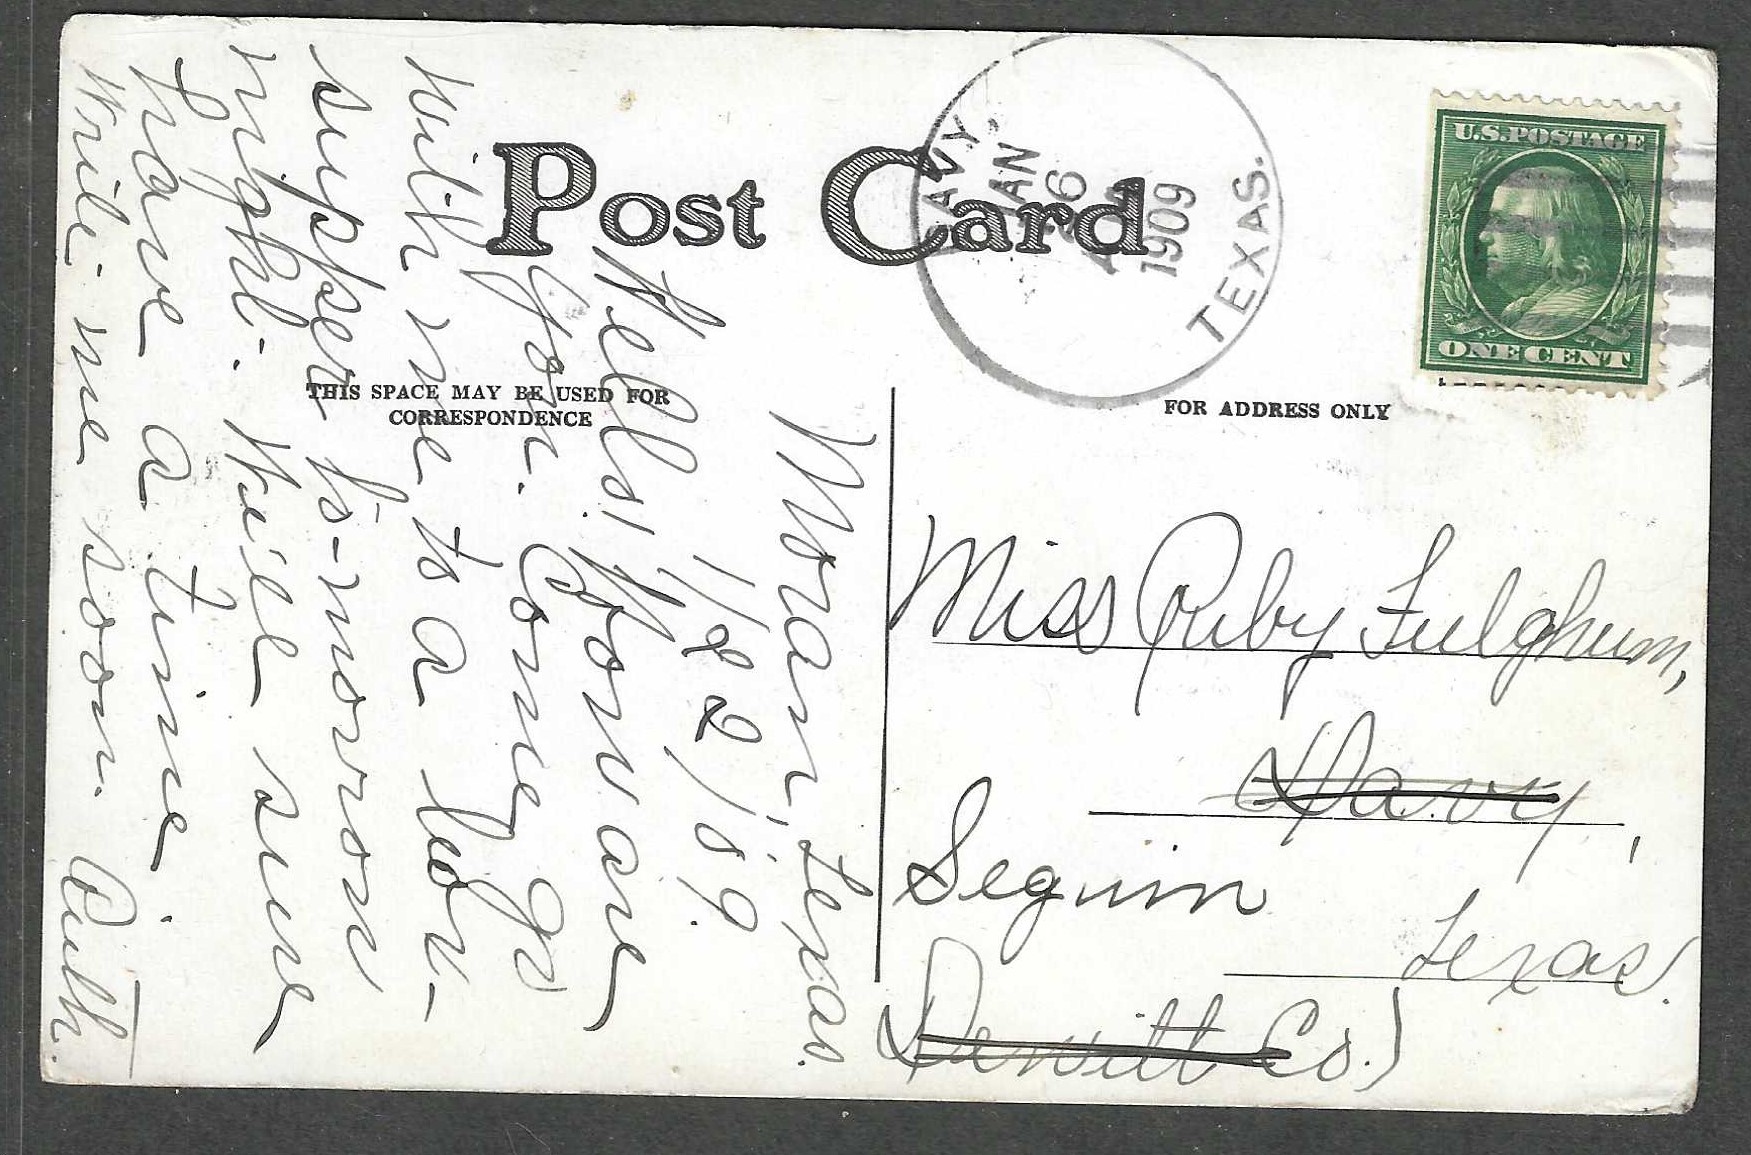 Post Card
THIS SPACE MAY BE USED FOR
CORRESPONDENCE
FOR ADDRESS ONLY
DAVY,
JAN
26
1909
TEXAS.
U.S. POSTAGE
ONE CENT
Moran, Texas.
1/22/'09.
Hello! How are
you. Come go
with me to a
supper to-morrow
night. We'll sure
have a time.
Write me soon. Ruth.
Miss Ruby Fulghum,
Davy,
Seguin
Texas.
Dewitt Co.)